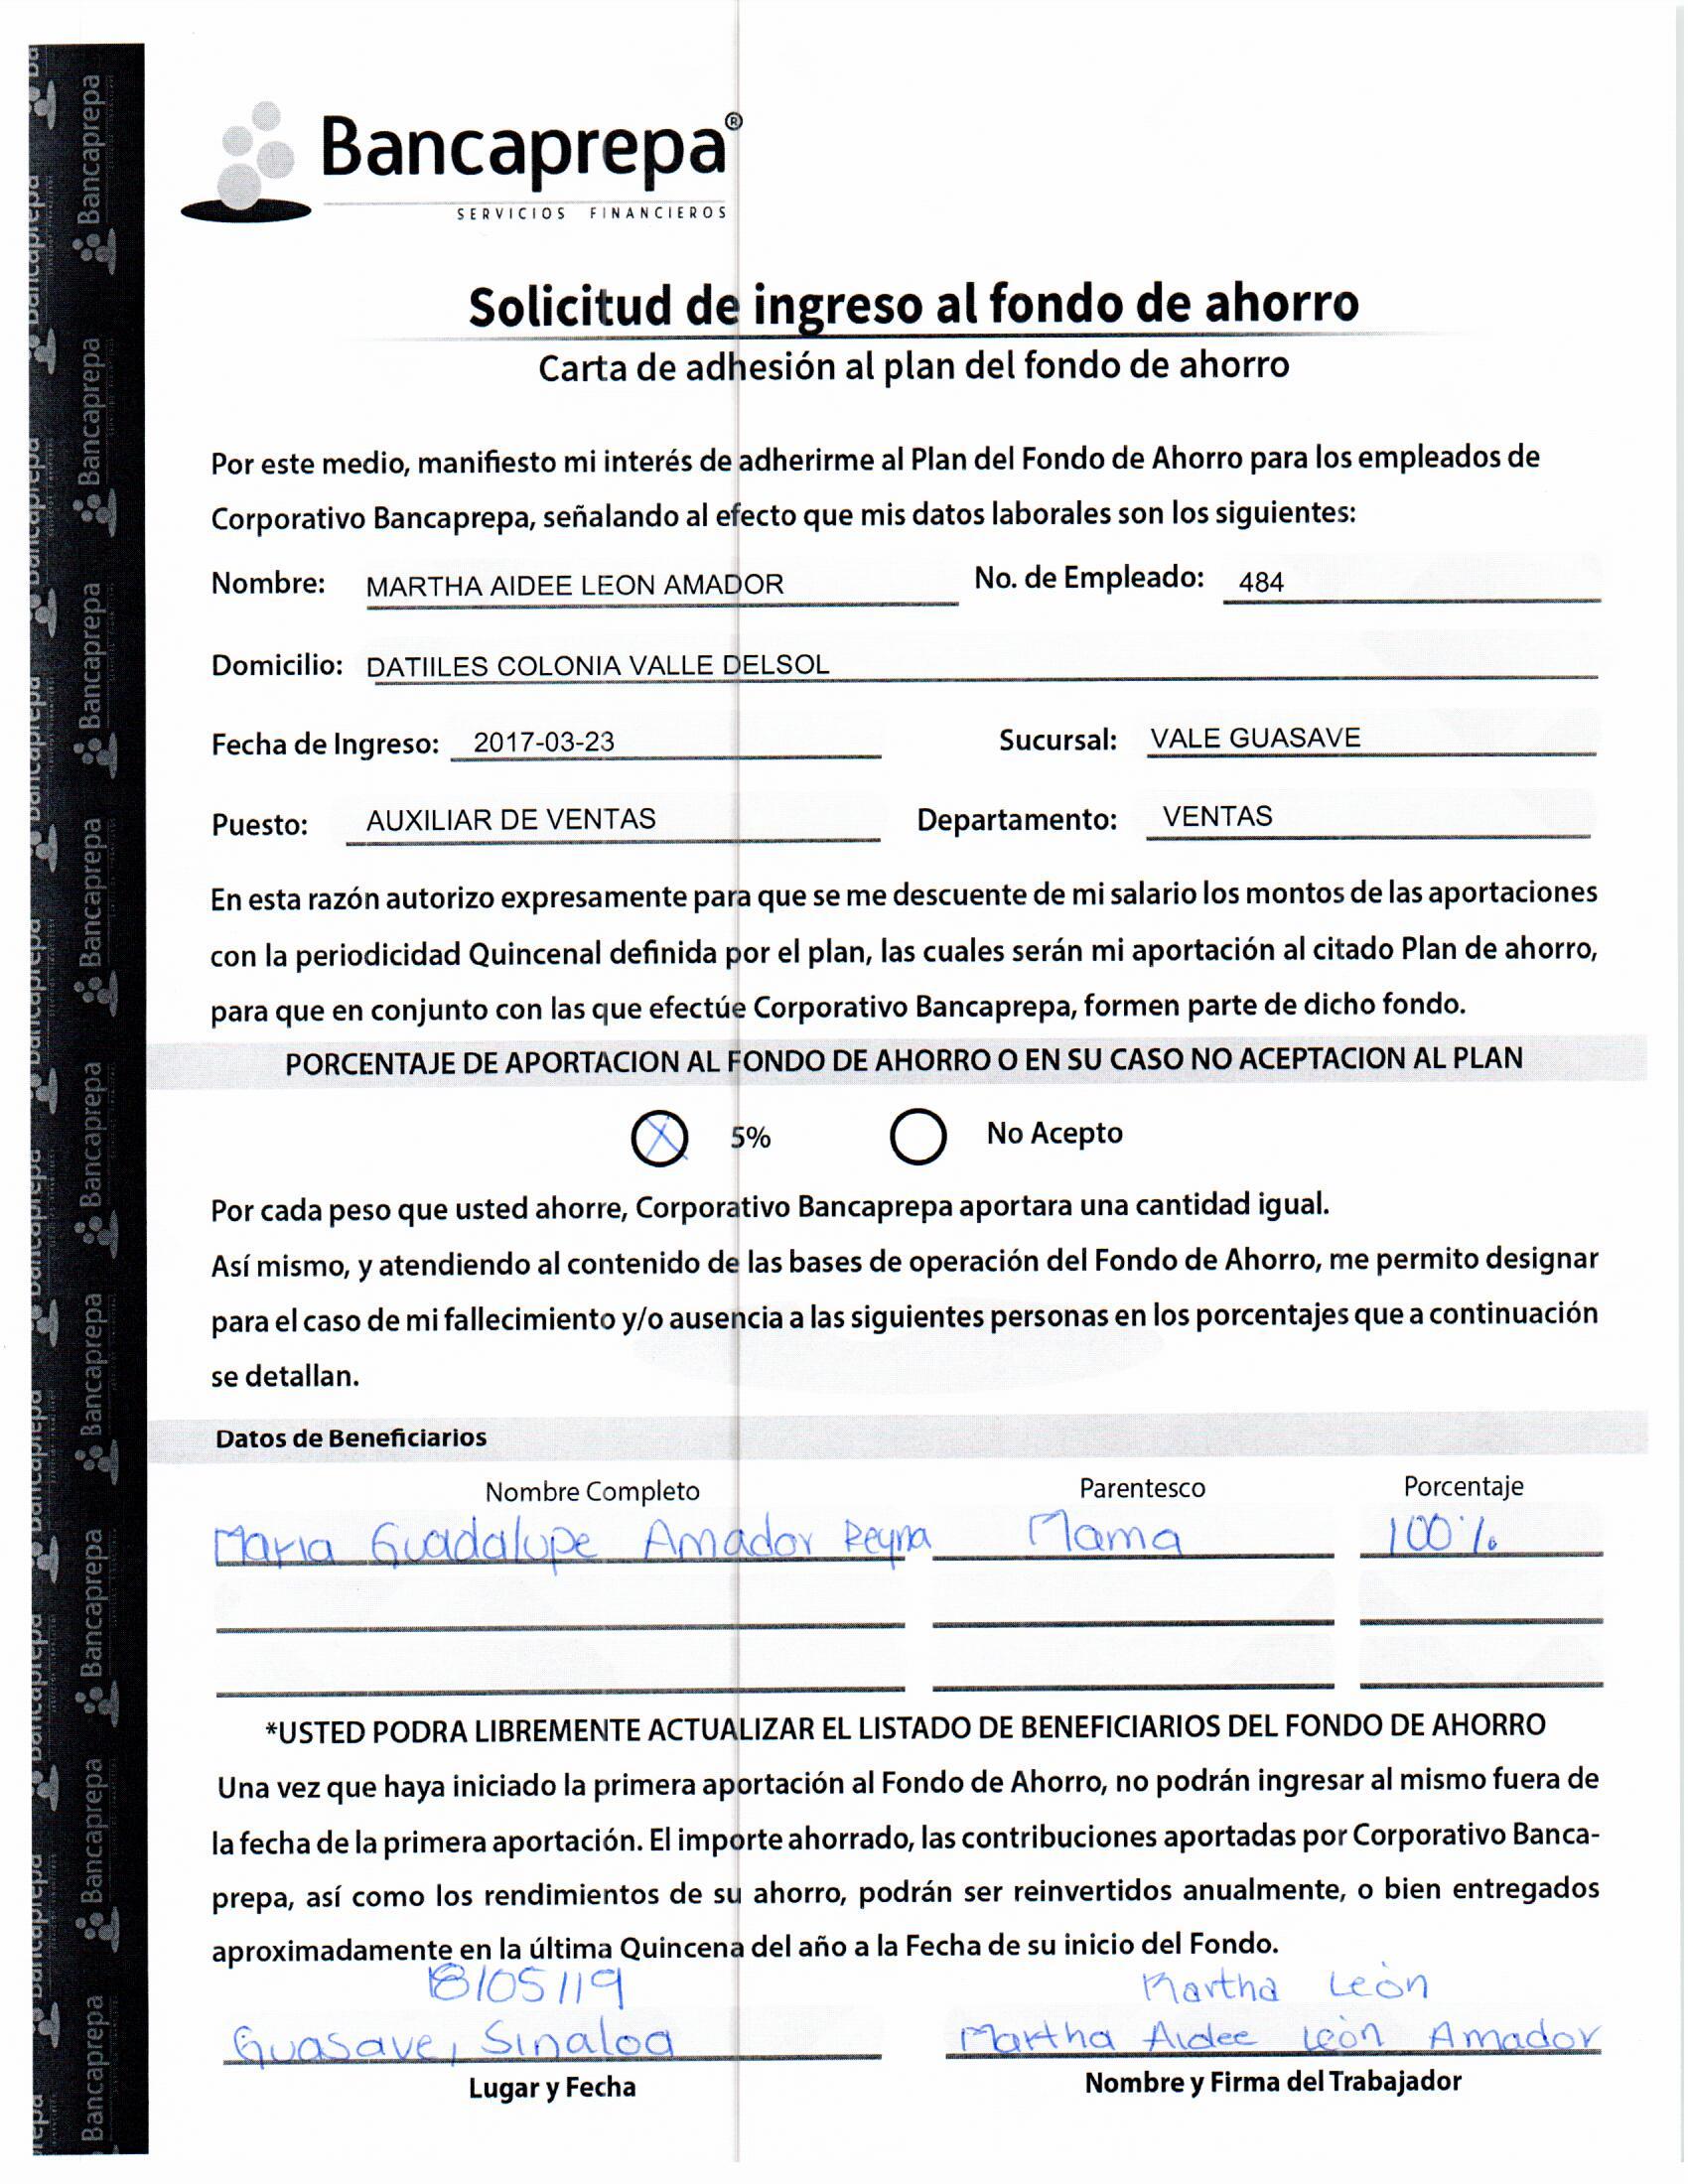 Bancaprepa®
SERVICIOS FINANCIEROS
Solicitud de ingreso al fondo de ahorro
Carta de adhesión al plan del fondo de ahorro
Por este medio, manifiesto mi interés de adherirme al Plan del Fondo de Ahorro para los empleados de
Corporativo Bancaprepa, señalando al efecto que mis datos laborales son los siguientes:
Nombre: MARTHA AIDEE LEON AMADOR No. de Empleado: 484
Domicilio: DATIILES COLONIA VALLE DELSOL
Fecha de Ingreso: 2017-03-23 Sucursal: VALE GUASAVE
Puesto: AUXILIAR DE VENTAS Departamento: VENTAS
En esta razón autorizo expresamente para que se me descuente de mi salario los montos de las aportaciones
con la periodicidad Quincenal definida por el plan, las cuales serán mi aportación al citado Plan de ahorro,
para que en conjunto con las que efectúe Corporativo Bancaprepa, formen parte de dicho fondo.
PORCENTAJE DE APORTACION AL FONDO DE AHORRO O EN SU CASO NO ACEPTACION AL PLAN
X 5% No Acepto
Por cada peso que usted ahorre, Corporativo Bancaprepa aportara una cantidad igual.
Así mismo, y atendiendo al contenido de las bases de operación del Fondo de Ahorro, me permito designar
para el caso de mi fallecimiento y/o ausencia a las siguientes personas en los porcentajes que a continuación
se detallan.
Datos de Beneficiarios
Nombre Completo Parentesco Porcentaje
Maria Guadalupe Amador Reyna Mama 100%
*USTED PODRA LIBREMENTE ACTUALIZAR EL LISTADO DE BENEFICIARIOS DEL FONDO DE AHORRO
Una vez que haya iniciado la primera aportación al Fondo de Ahorro, no podrán ingresar al mismo fuera de
la fecha de la primera aportación. El importe ahorrado, las contribuciones aportadas por Corporativo Banca-
prepa, así como los rendimientos de su ahorro, podrán ser reinvertidos anualmente, o bien entregados
aproximadamente en la última Quincena del año a la Fecha de su inicio del Fondo.
18/05/19 Martha León
Guasave, Sinaloa Martha Aidee León Amador
Lugar y Fecha Nombre y Firma del Trabajador